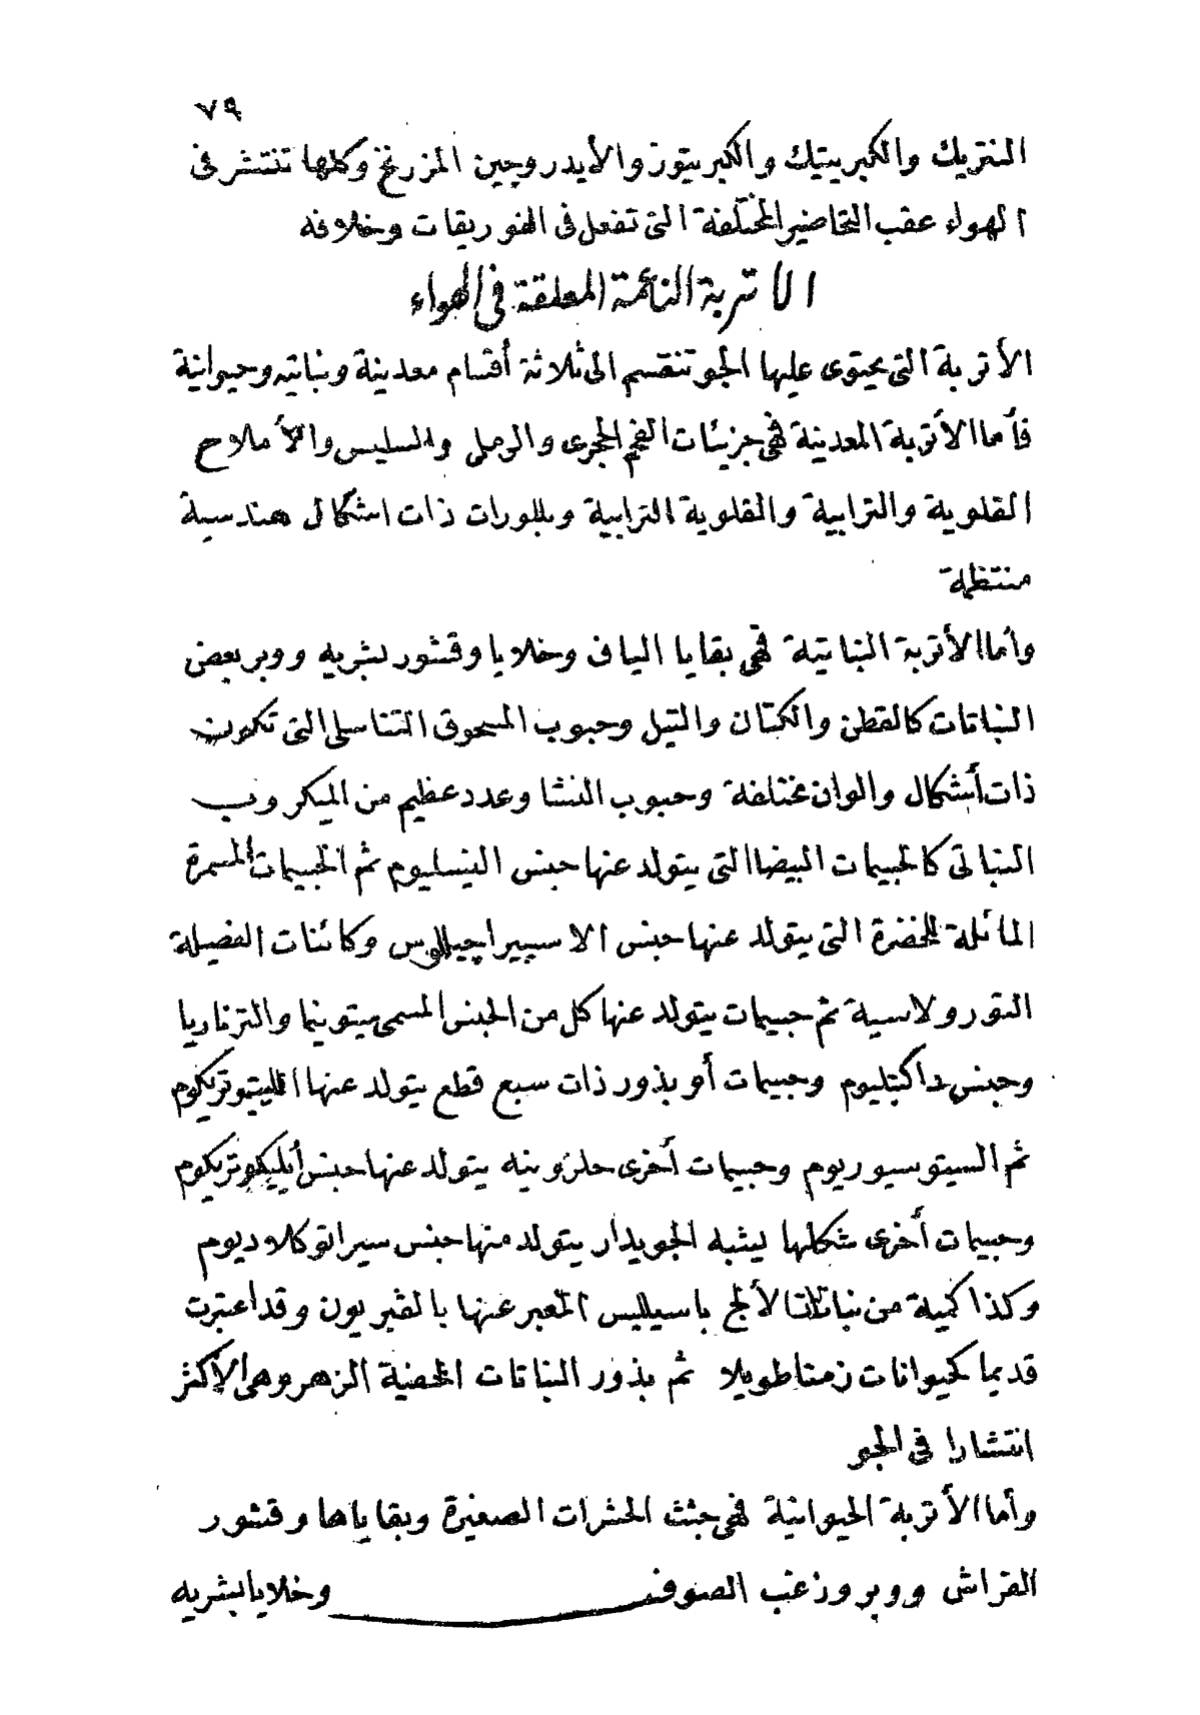 ٧٩
النتريك والكبريتيك والكبريتوز والأيدروچين المزرنخ وكلها تنتشر فى
الهواء عقب التحاضير المختلفة التى تفعل فى الفوريقات وخلافه
الاتربة الناعمة المعلقة فى الهواء
الأتربة التى يحتوى عليها الجو تنقسم الى ثلاثة أقسام معدنية ونباتيه وحيوانية
فأما الأتربة المعدنية فهى جزيئات الفحم الحجرى والرملى والسليس والأملاح
القلوية والترابية والقلوية الترابية وبللورات ذات اشكال هندسية
منتظمة
وأما الأتربة النباتية فهى بقايا الياف وخلايا وقشور بشريه ووبر بعض
النباتات كالقطن والكتان والتيل وحبوب المسحوق التناسلى التى تكون
ذات أشكال والوان مختلفة وحبوب النشا وعدد عظيم من الميكروب
النباتى كالحبيبات البيضا التى يتولد عنها جنس البنسليوم ثم الحبيبات المسمرة
المائلة للخضرة التى يتولد عنها جنس الاسپيراچيللوس وكائنات الفصيلة
التورولاسية ثم حبيبات يتولد عنها كل من الجنس المسمى والترناريا
وجنس داكتليوم وحبيبات أو بذور ذات سبع قطع يتولد عنها
ثم السيتوسيوريوم وحبيبات أخرى حلزونيه يتولد عنها جنس أيليكوتريكوم
وحبيبات أخرى شكلها يشبه الجويدار يتولد منها جنس سيراتوكلاديوم
وكذا كمية من نباتات الألج باسيليس المعبر عنها بالڤبريون وقد اعتبرت
قديما كحيوانات زمنا طويلا ثم بذور النباتات الخفية الزهر وهى الأكثر
انتشارا فى الجو
وأما الأتربة الحيوانية فهى جثث الحشرات الصغيرة وبقاياها وقشور
الفراش ووبر وزغب الصوف وخلايا بشريه